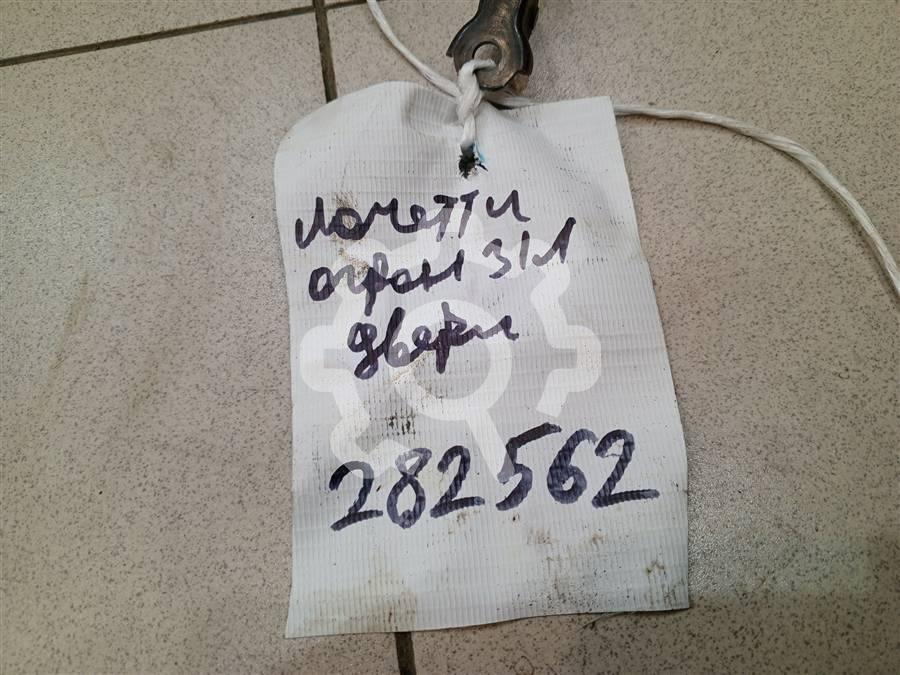 лачетти
огран ЗЛ
двери
282562